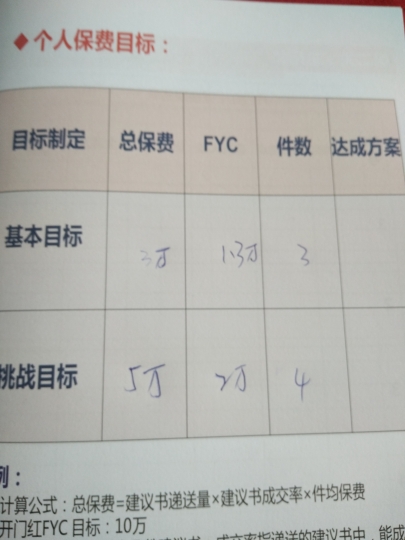 ◆个人保费目标：
目标制定 总保费 FYC 件数 达成方案
基本目标 3万 1.3万 3
挑战目标 5万 2万 4
例：
计算公式：总保费=建议书递送量×建议书成交率×件均保费
开门红FYC目标：10万
成交率指递送的建议书中，能成